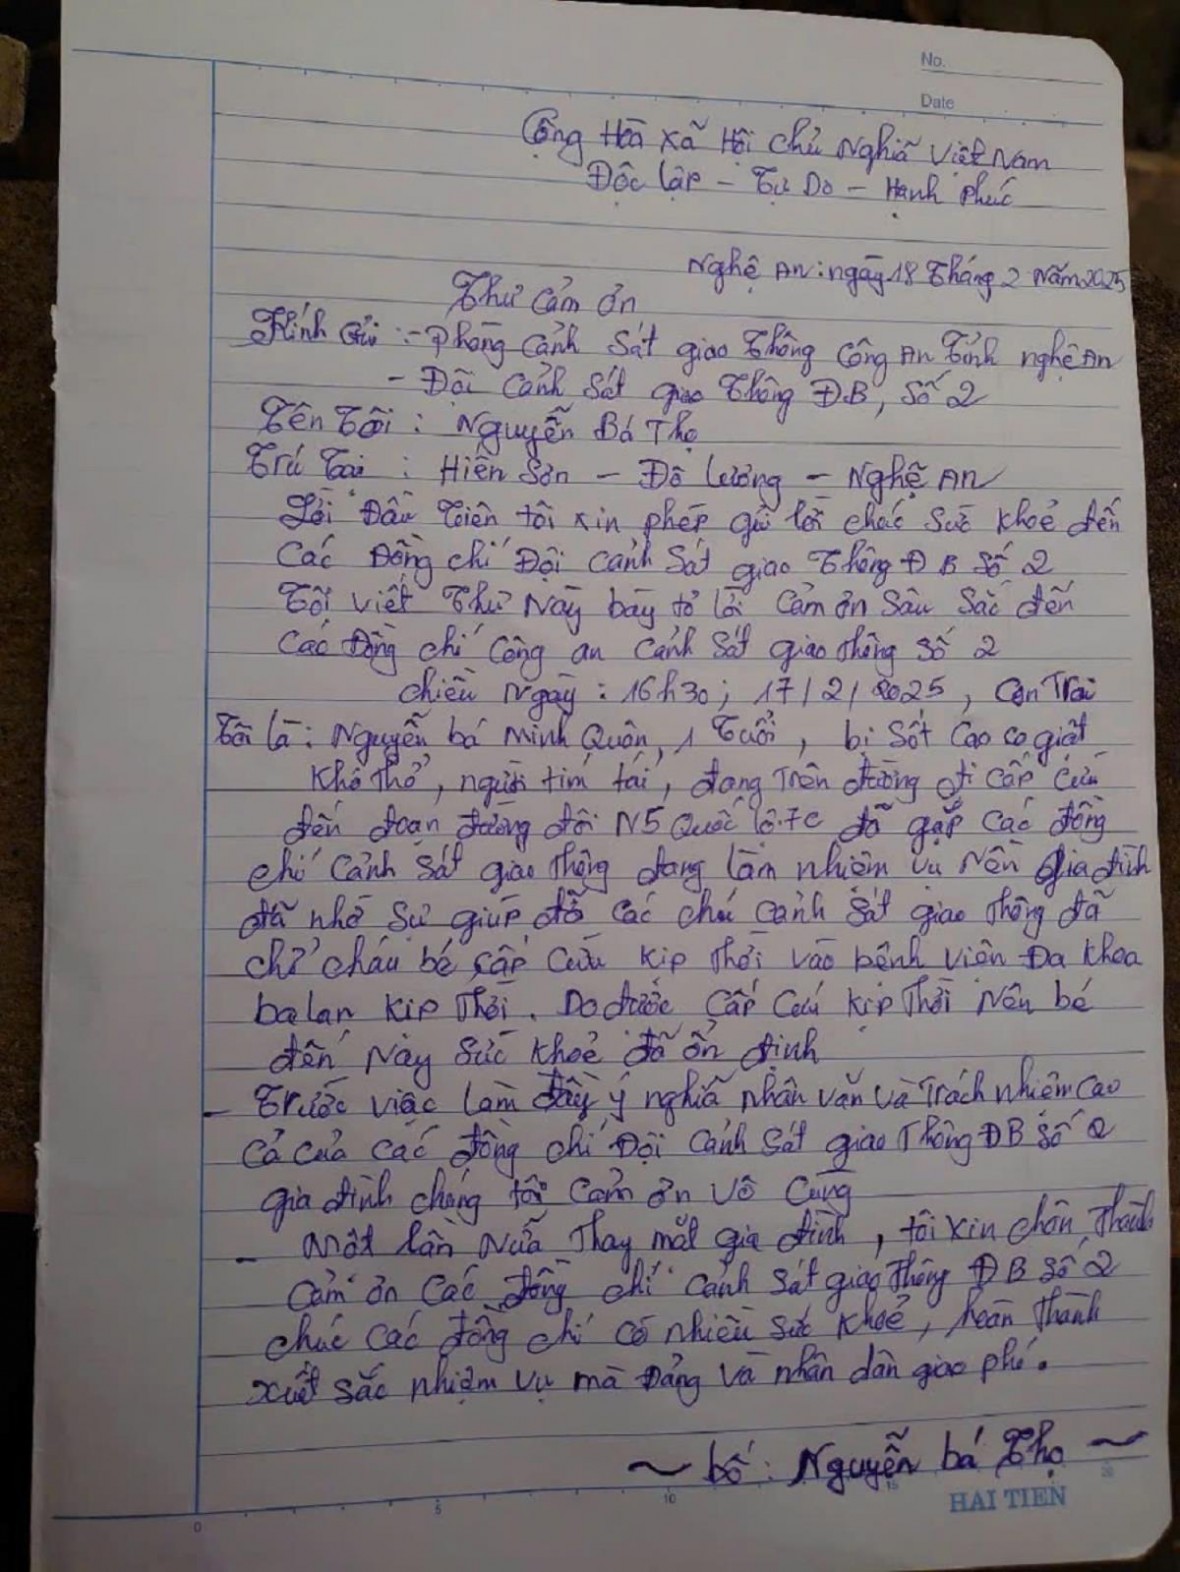 No.
Date
Cộng Hoà xã Hội chủ Nghĩa Việt Nam
Độc lập - Tự Do - Hạnh phúc
Nghệ An: ngày 18 tháng 2 năm 2025
Thư cảm ơn
Kính Gửi :- Phòng cảnh sát giao thông công An tỉnh nghệ An
- Đội cảnh sát giao thông Đ.B, Số 2
Tên tôi : Nguyễn Bá Thọ
Trú tại : Hiến Sơn - Đô lương - Nghệ An
Lời đầu tiên tôi xin phép gửi lời chúc sức khoẻ đến
các Đồng chí Đội cảnh sát giao thông Đ B số 2
Tôi viết thư này bày tỏ lời cảm ơn sâu sắc đến
các đồng chí công an cảnh sát giao thông số 2
chiều ngày : 16h30; 17/2/2025, con trai
tôi là : Nguyễn bá Minh Quân, 1 tuổi, bị sốt cao co giật
khó thở, người tím tái, đang trên đường đi cấp cứu
đến đoạn đường đôi N5 Quốc lộ.7c đã gặp các đồng
chí cảnh sát giao thông đang làm nhiệm vụ nên gia đình
đã nhờ sự giúp đỡ các chú cảnh sát giao thông đã
chở cháu bé cấp cứu kịp thời vào bệnh viện Đa khoa
ba lan kịp thời. Do được cấp cứu kịp thời nên bé
đến này sức khoẻ đã ổn định
- Trước việc làm đầy ý nghĩa nhân văn và trách nhiệm cao
cả của các đồng chí Đội cảnh sát giao thông ĐB số 2
gia đình chúng tôi cảm ơn vô cùng
- Một lần nữa thay mặt gia đình, tôi xin chân thành
cảm ơn các đồng chí cảnh sát giao thông ĐB số 2
chúc các đồng chí có nhiều sức khoẻ, hoàn thành
xuất sắc nhiệm vụ mà Đảng và nhân dân giao phó.
~ bố : Nguyễn bá Thọ ~
0 5 10 15 20
HAI TIEN